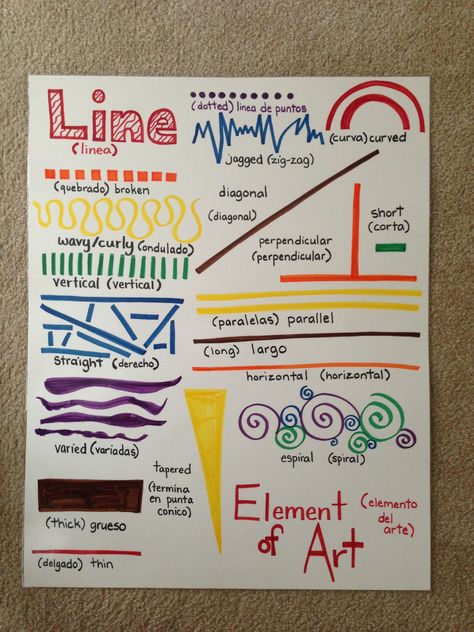 Line
(linea)
(dotted) linea de puntos
jagged (zig-zag)
(curva) curved
(quebrado) broken
diagonal
(diagonal)
short
(corta)
wavy/curly (ondulado)
perpendicular
(perpendicular)
vertical (vertical)
(paralelas) parallel
straight (derecho)
(long) largo
horizontal (horizontal)
varied (variadas)
espiral (spiral)
tapered
(termina
en punta
conico)
(thick) grueso
(delgado) thin
Element
of Art
(elemento
del
arte)